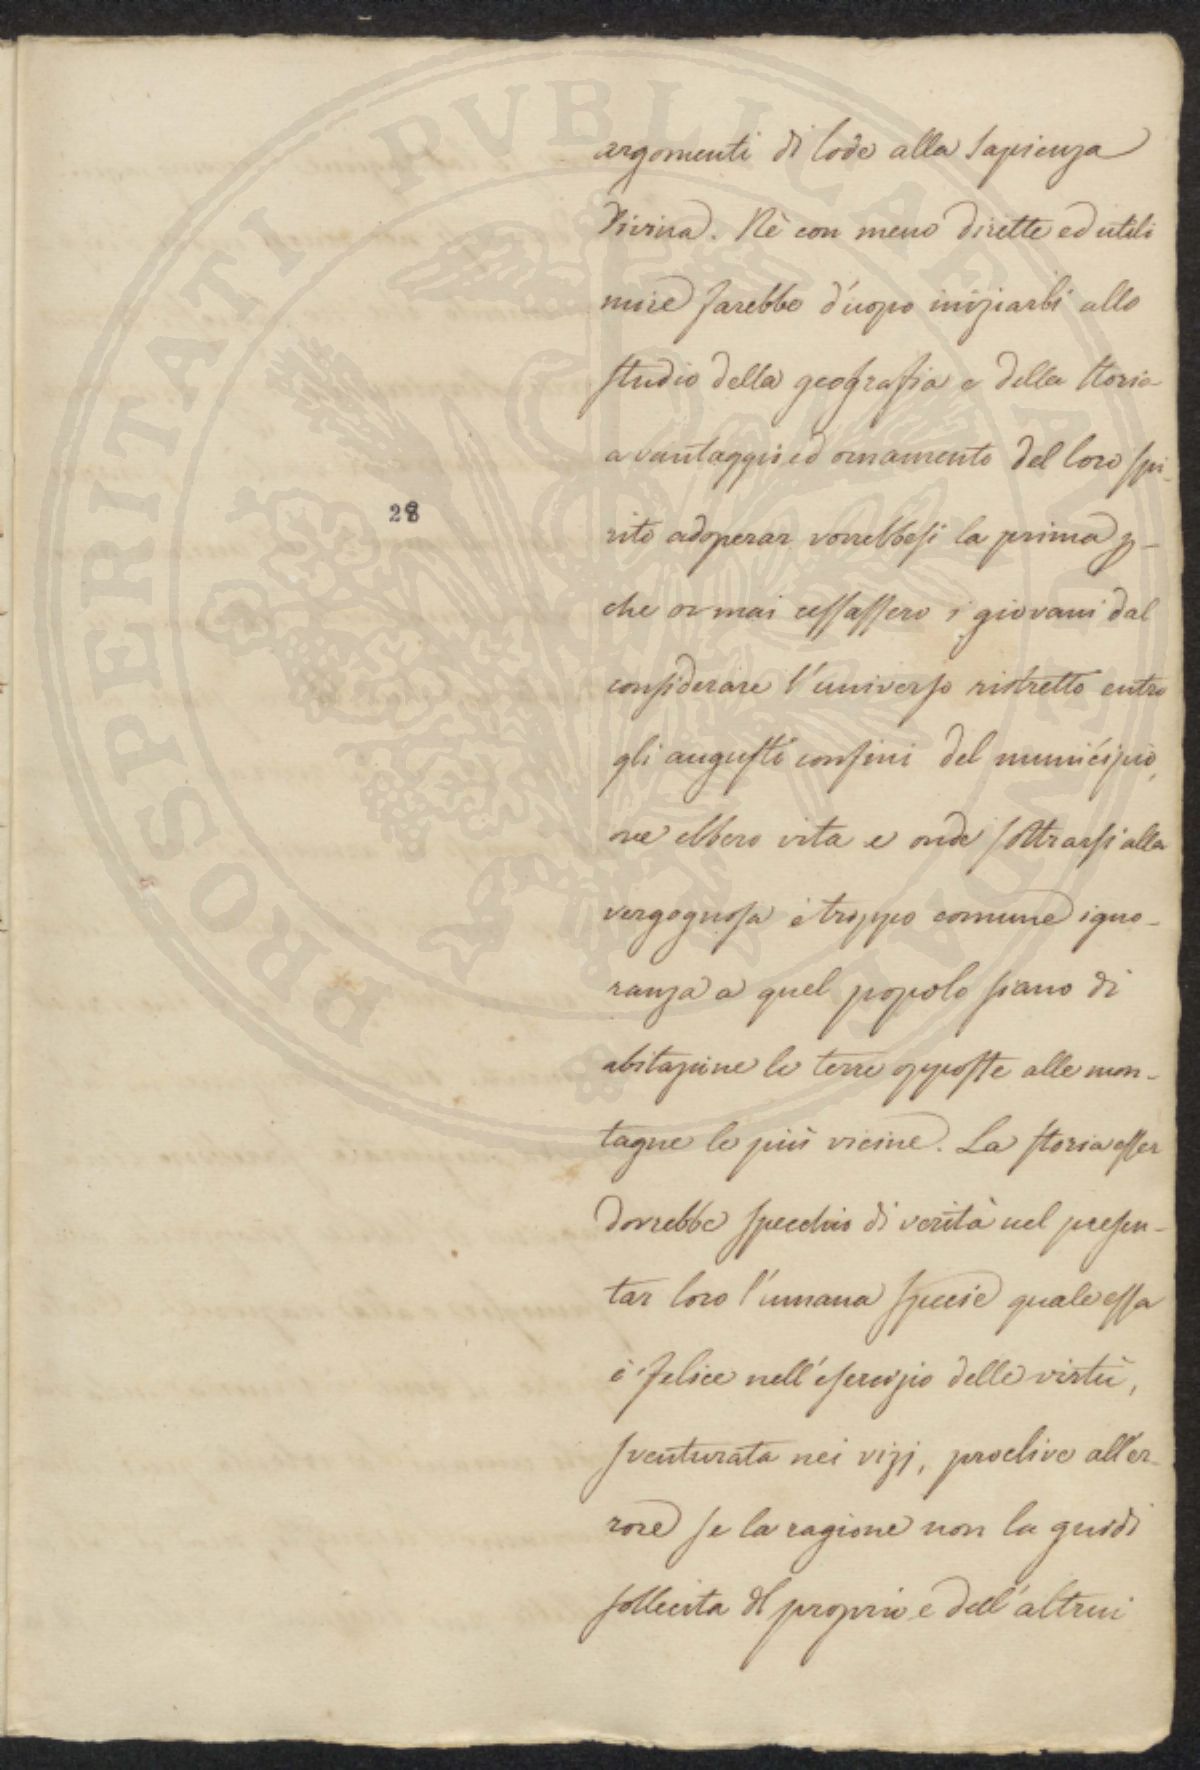 PROSPERITATI PVBLICAE AVGENDAE
argomenti di lode alla Sapienza
Divina. Nè con meno dirette ed utili
mire sarebbe d'uopo iniziarli allo
studio della geografia e della storia
a vantaggio ed ornamento del loro spi-
28
rito adoperar vorrebbesi la prima
che ormai cessassero i giovani dal
considerare l'universo ristretto entro
gli angusti confini del municipio,
ove ebbero vita e onde sottrarsi alla
vergognosa e troppo comune igno-
ranza a quel popolo siano di
abitazione le terre opposte alle mon-
tagne le più vicine. La storia esser
dovrebbe specchio di verità nel presen-
tar loro l'umana specie quale essa
è felice nell'esercizio delle virtù,
sventurata nei vizj, proclive all'er-
rore se la ragione non la guidi
sollecita del proprio e dell'altrui